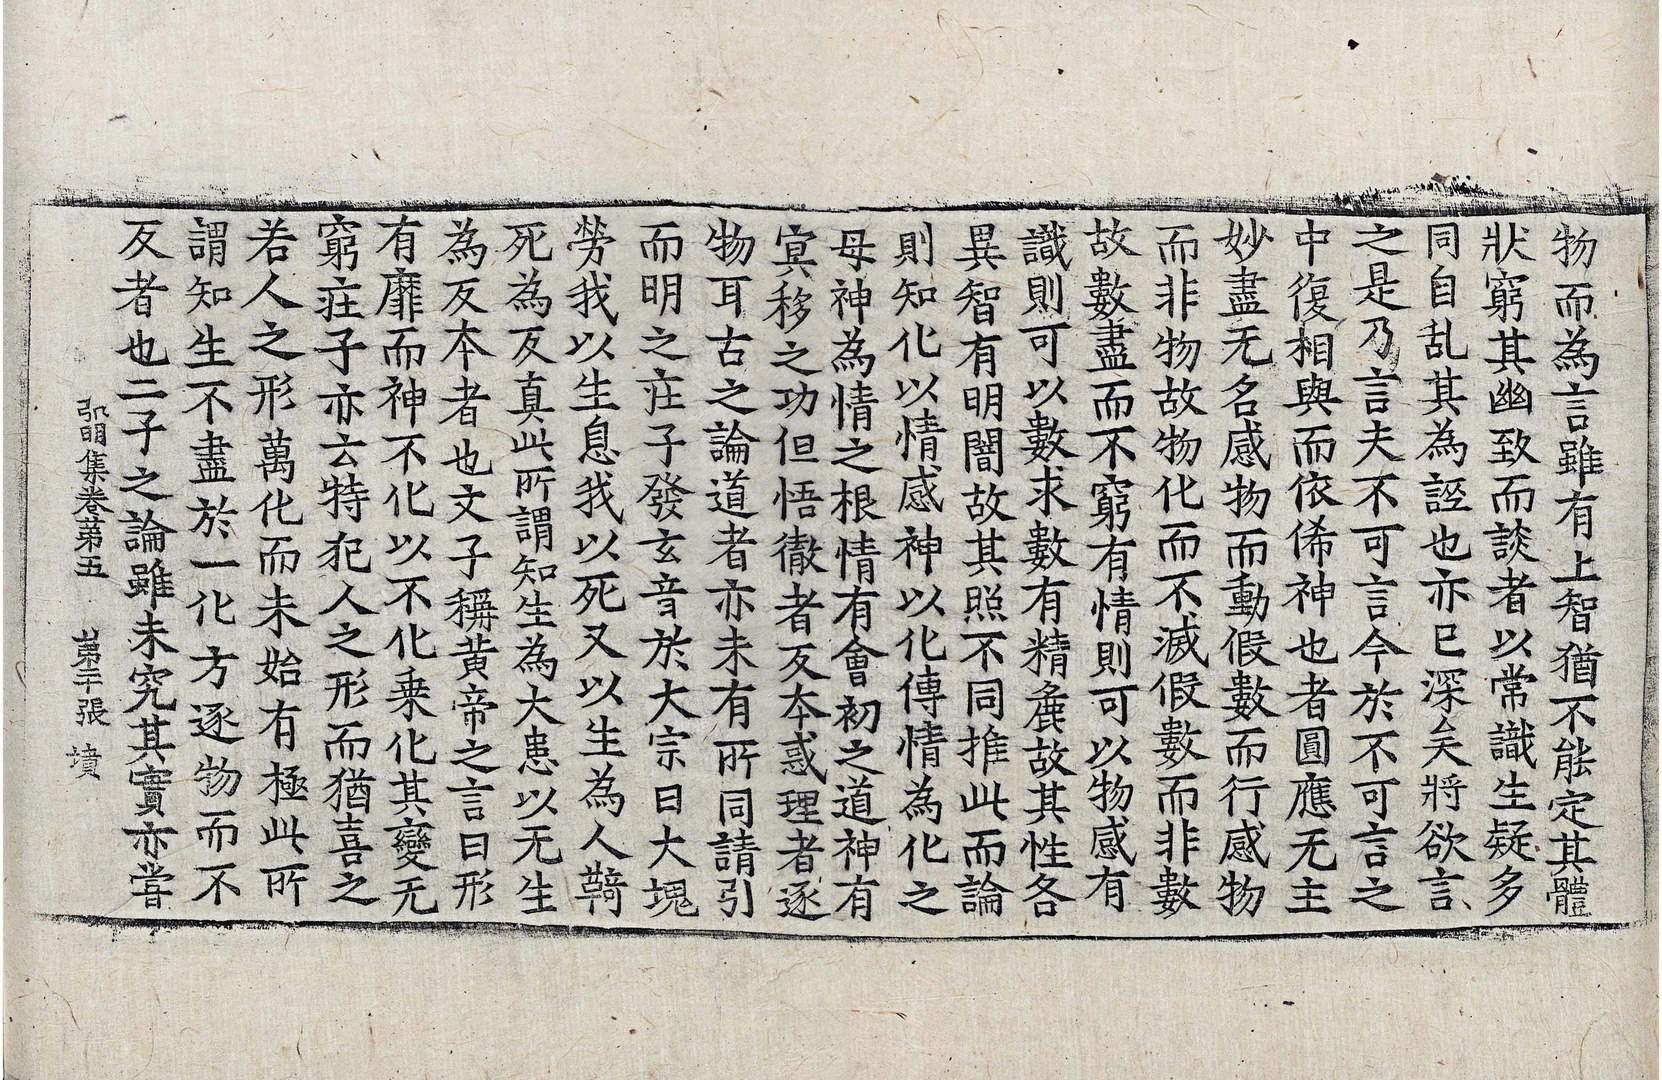 物而為言雖有上智猶不能定其體
狀窮其幽致而談者以常識生疑多
同自乱其為誣也亦已深矣將欲言
之是乃言夫不可言今於不可言之
中復相與而依俙神也者圓應无主
妙盡无名感物而動假數而行感物
而非物故物化而不滅假數而非數
故數盡而不窮有情則可以物感有
識則可以數求數有精麁故其性各
異智有明闇故其照不同推此而論
則知化以情感神以化傳情為化之
母神為情之根情有會初之道神有
㝠移之功但悟徹者反本惑理者逐
物耳古之論道者亦未有所同請引
而明之庄子發玄音於大宗曰大塊
勞我以生息我以死又以生為人䩭
死為反真此所謂知生為大患以无生
為反本者也文子稱黄帝之言曰形
有靡而神不化以不化乗化其變无
窮庄子亦云特犯人之形而猶喜之
若人之形萬化而未始有極此所
謂知生不盡於一化方逐物而不
反者也二子之論雖未究其實亦甞
弘明集卷苐五　苐二十張　墳